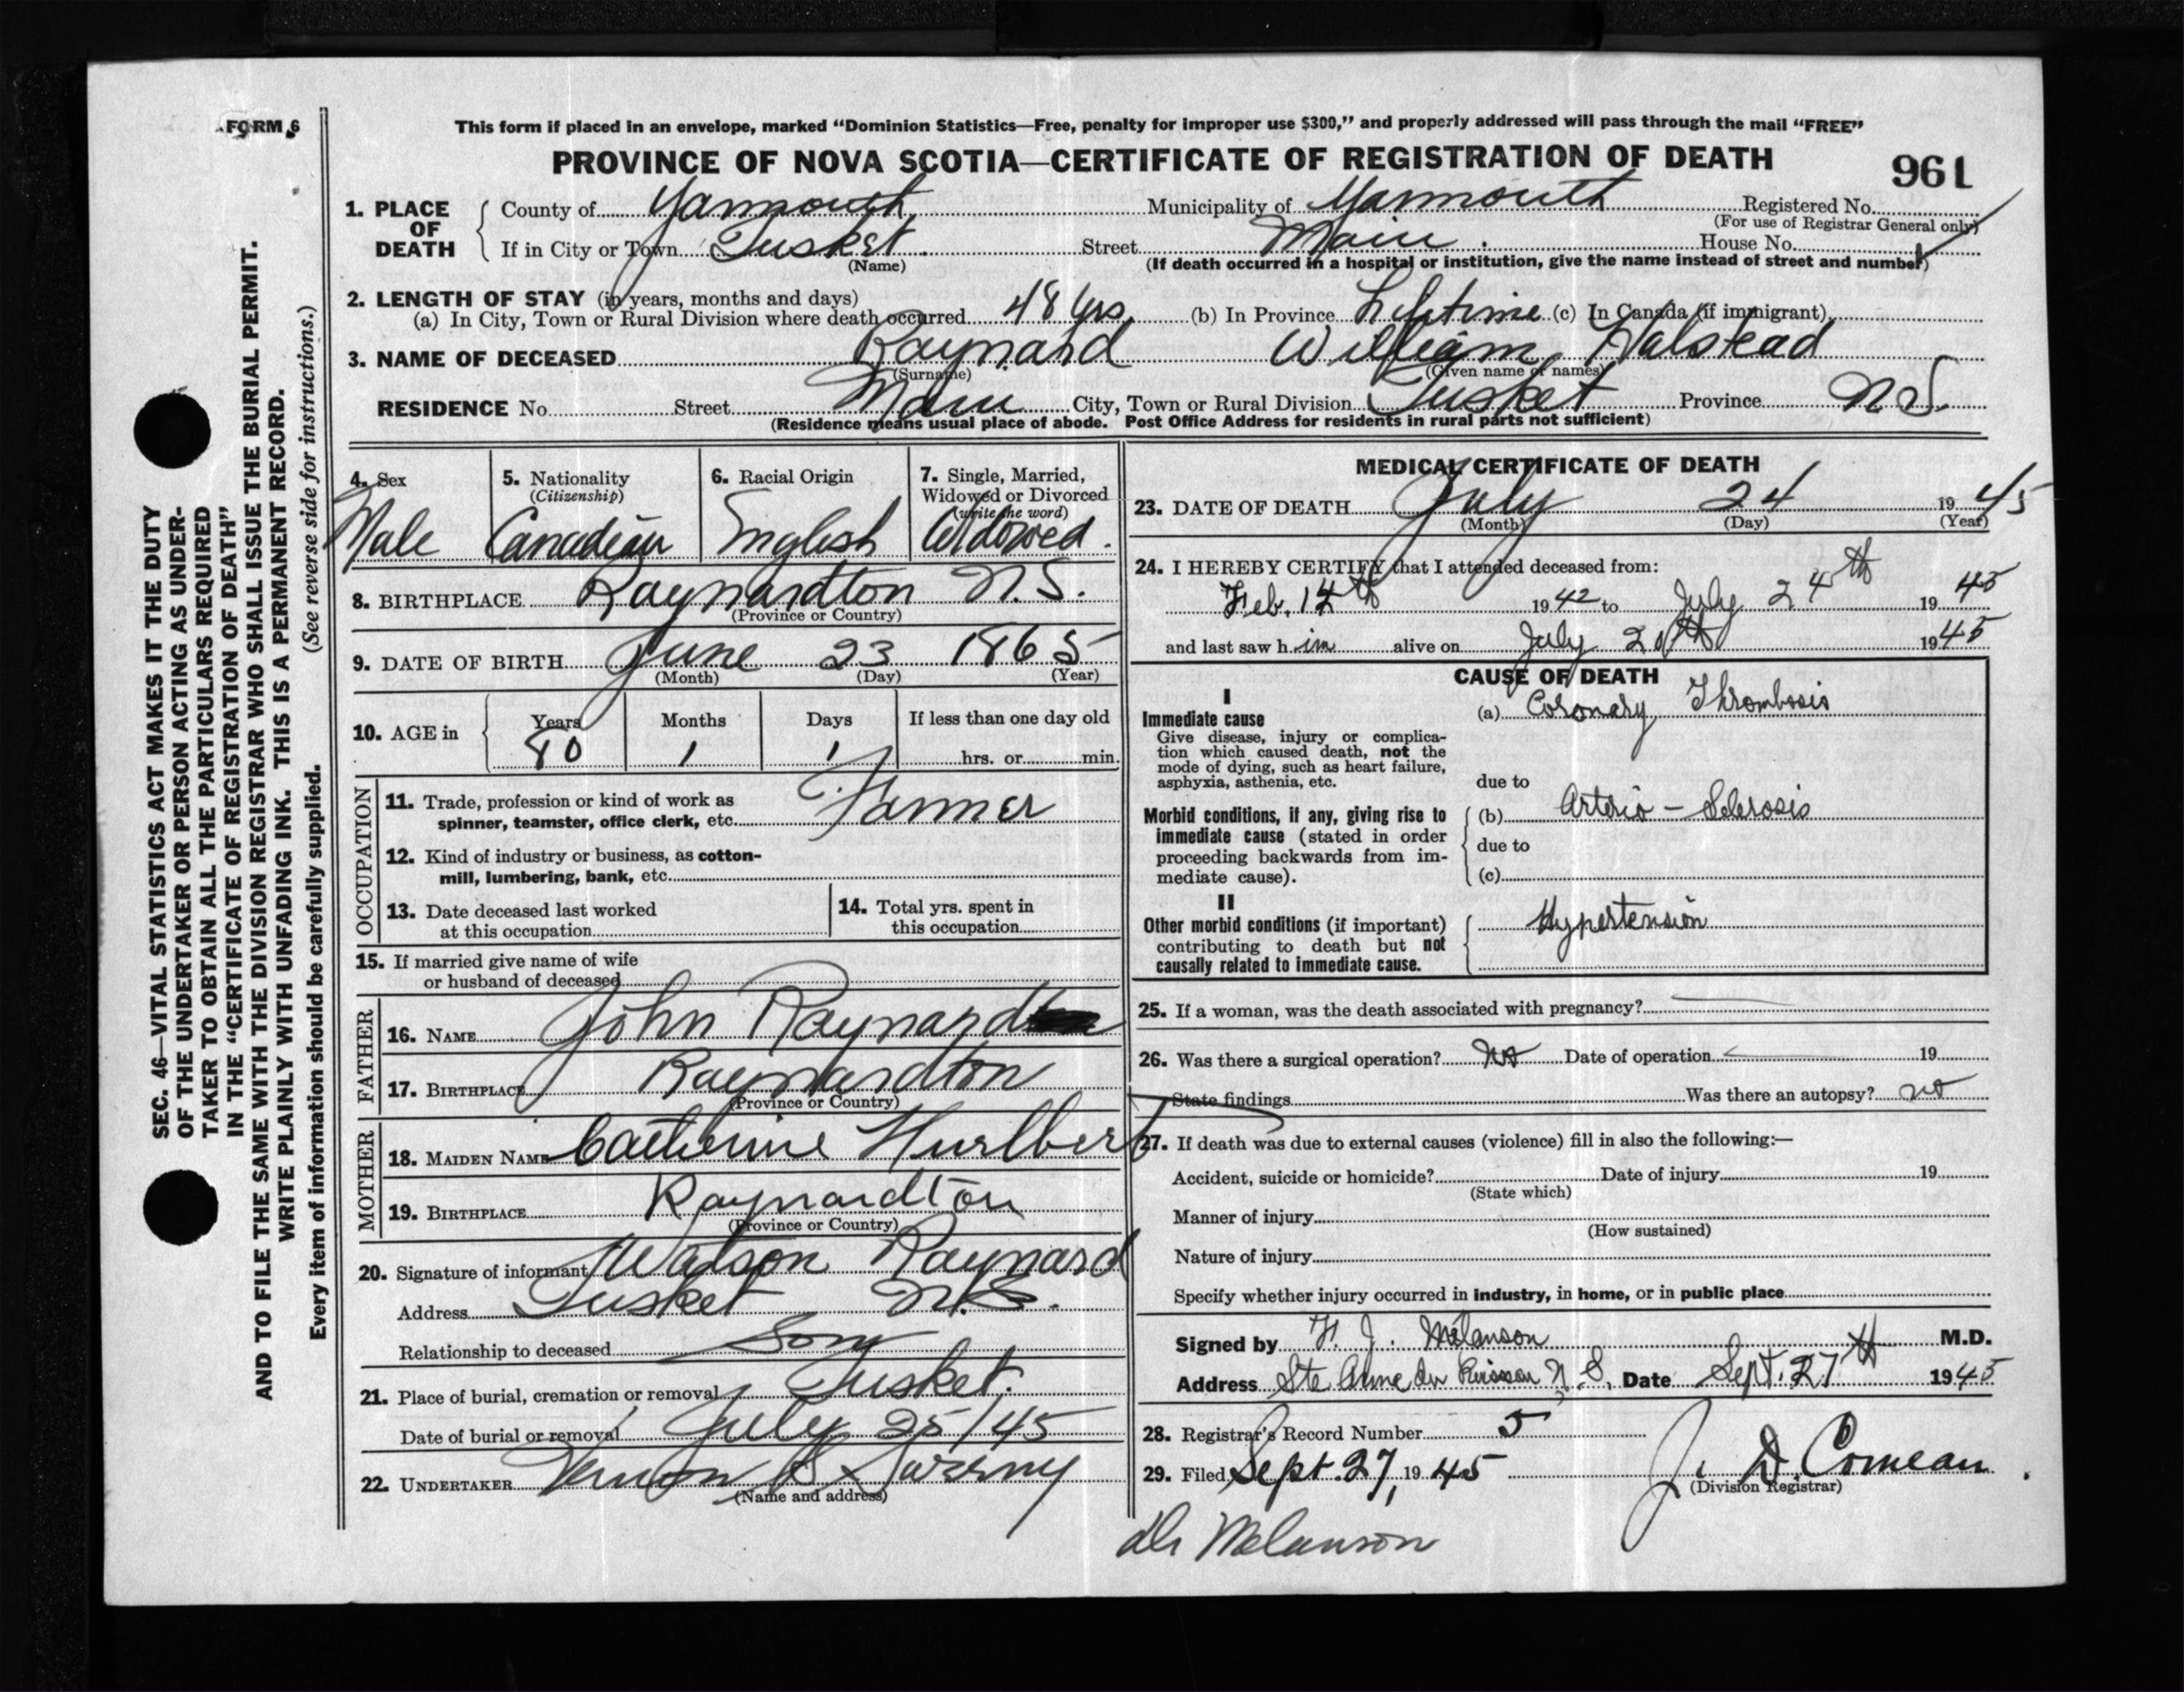 FORM 6
This form if placed in an envelope, marked “Dominion Statistics—Free, penalty for improper use $300,” and properly addressed will pass through the mail “FREE”
PROVINCE OF NOVA SCOTIA—CERTIFICATE OF REGISTRATION OF DEATH
961
SEC. 46—VITAL STATISTICS ACT MAKES IT THE DUTY
OF THE UNDERTAKER OR PERSON ACTING AS UNDER-
TAKER TO OBTAIN ALL THE PARTICULARS REQUIRED
IN THE “CERTIFICATE OF REGISTRATION OF DEATH”
AND TO FILE THE SAME WITH THE DIVISION REGISTRAR WHO SHALL ISSUE THE BURIAL PERMIT.
WRITE PLAINLY WITH UNFADING INK. THIS IS A PERMANENT RECORD.
Every item of information should be carefully supplied. (See reverse side for instructions.)
1. PLACE OF DEATH
County of Yarmouth Municipality of Yarmouth Registered No.
(For use of Registrar General only)
If in City or Town Tusket. Street Main. House No.
(Name) (If death occurred in a hospital or institution, give the name instead of street and number)
2. LENGTH OF STAY (in years, months and days)
(a) In City, Town or Rural Division where death occurred 48 yrs. (b) In Province Lifetime (c) In Canada (if immigrant)
3. NAME OF DECEASED Raynard William Halstead
(Surname) (Given name or names)
RESIDENCE No. Street Main City, Town or Rural Division Tusket Province N.S.
(Residence means usual place of abode. Post Office Address for residents in rural parts not sufficient)
4. Sex
Male
5. Nationality
(Citizenship)
Canadian
6. Racial Origin
English
7. Single, Married,
Widowed or Divorced
(write the word)
Widowed.
8. BIRTHPLACE Raynardton N.S.
(Province or Country)
9. DATE OF BIRTH June 23 1865
(Month) (Day) (Year)
10. AGE in Years Months Days If less than one day old
80 1 1 hrs. or min.
OCCUPATION
11. Trade, profession or kind of work as
spinner, teamster, office clerk, etc. Farmer
12. Kind of industry or business, as cotton-
mill, lumbering, bank, etc.
13. Date deceased last worked
at this occupation
14. Total yrs. spent in
this occupation
15. If married give name of wife
or husband of deceased
FATHER
16. NAME John Raynard
17. BIRTHPLACE Raynardton
(Province or Country)
MOTHER
18. MAIDEN NAME Catherine Hurlbert
19. BIRTHPLACE Raynardton
(Province or Country)
20. Signature of informant Watson Raynard
Address Tusket N.S.
Relationship to deceased Son
21. Place of burial, cremation or removal Tusket.
Date of burial or removal July 25/45
22. UNDERTAKER Vernon Sweeny
(Name and address)
MEDICAL CERTIFICATE OF DEATH
23. DATE OF DEATH July 24 1945
(Month) (Day) (Year)
24. I HEREBY CERTIFY that I attended deceased from:
Feb. 12th 1942 to July 24th 1945
and last saw him alive on July 20th 1945
CAUSE OF DEATH
I
Immediate cause
Give disease, injury or complica-
tion which caused death, not the
mode of dying, such as heart failure,
asphyxia, asthenia, etc.
(a) Coronary Thrombosis
due to
Morbid conditions, if any, giving rise to
immediate cause (stated in order
proceeding backwards from im-
mediate cause).
(b) Arterio-Sclerosis
due to
(c)
II
Other morbid conditions (if important)
contributing to death but not
causally related to immediate cause.
Hypertension
25. If a woman, was the death associated with pregnancy?
26. Was there a surgical operation? No Date of operation 19
State findings Was there an autopsy? no
27. If death was due to external causes (violence) fill in also the following:—
Accident, suicide or homicide? Date of injury 19
(State which)
Manner of injury
(How sustained)
Nature of injury
Specify whether injury occurred in industry, in home, or in public place
Signed by F. J. Melanson M.D.
Address Ste Anne du Ruisseau N.S. Date Sept. 27th 1945
28. Registrar's Record Number 5
29. Filed Sept. 27, 1945 J. D. Comeau.
(Division Registrar)
Dr Melanson